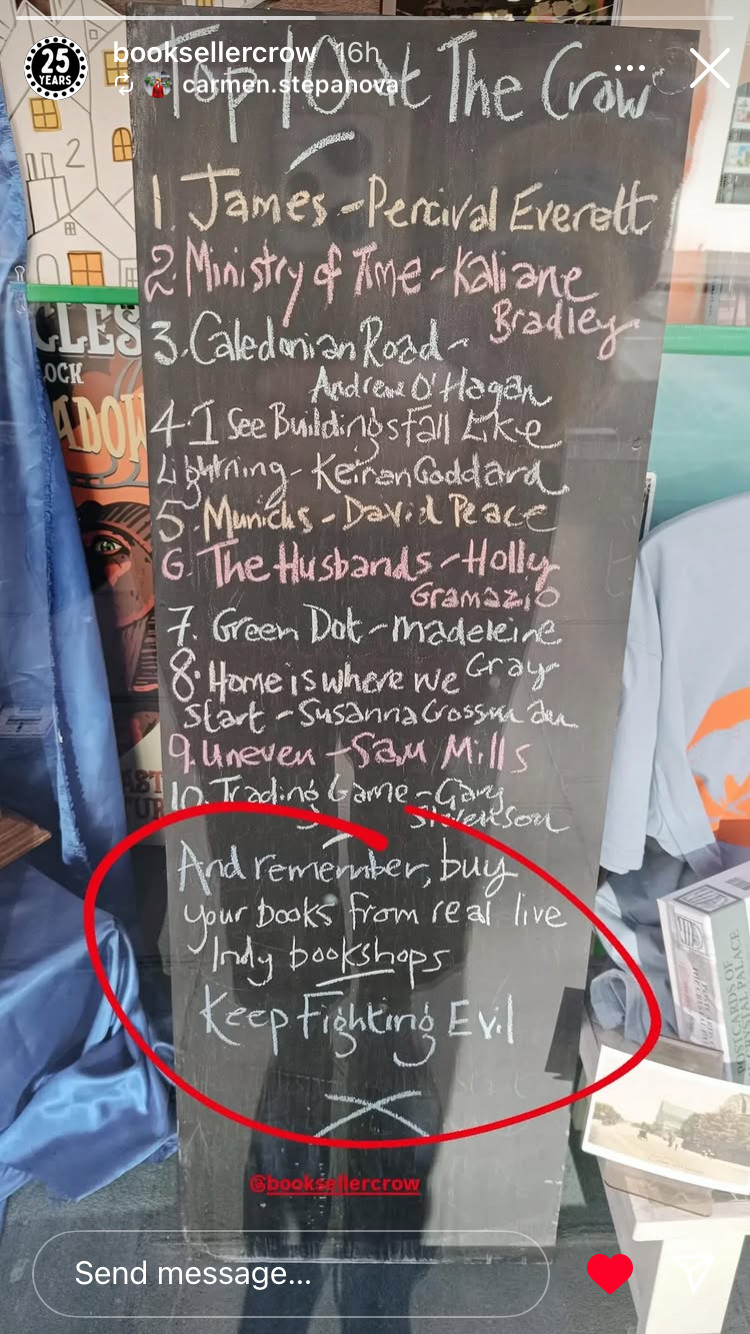 25
YEARS
booksellercrow 16h
carmen.stepanova
Top 10 at The Crow
1. James - Percival Everett
2. Ministry of Time - Kaliane
Bradley
3. Caledonian Road -
Andrew O'Hagan
4. I See Buildings Fall Like
Lightning - Keiran Goddard
5. Munichs - David Peace
6. The Husbands - Holly
Gramazio
7. Green Dot - Madeleine
Gray
8. Home is where we
Start - Susanna Crossman
9. Uneven - Sam Mills
10. Trading Game - Gary
Stevenson
And remember, buy
your books from real live
Indy bookshops
Keep Fighting Evil
X
@booksellercrow
2
CLES
OCK
ADOW
AST
UR
POSTCARDS OF
PALACE
Send message...